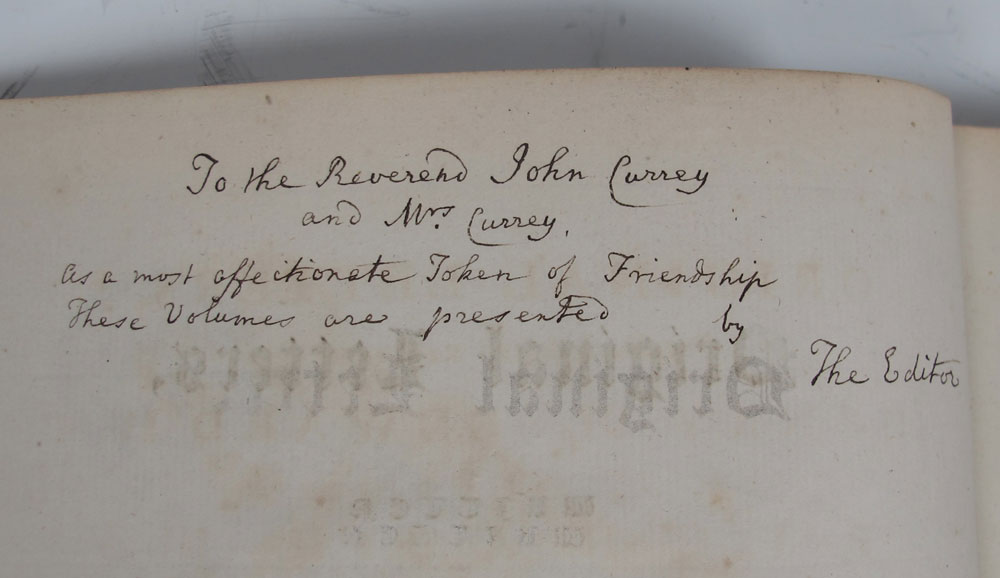 To the Reverend John Currey
and Mrs. Currey,
as a most affectionate Token of Friendship
These Volumes are presented by
The Editor
Original Letters,